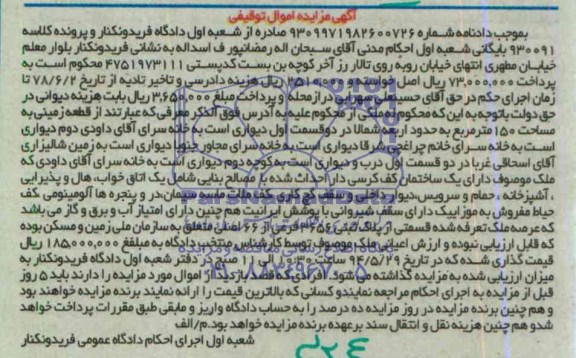 آگهی مزایده اموال توقیفی
بموجب دادنامه شماره ۹۳۰۹۹۷۱۹۸۲۶۰۰۷۲۶ صادره از شعبه اول دادگاه فریدونکنار و پرونده کلاسه
۹۳۰۰۹۱ بایگانی شعبه اول احکام مدنی آقای سبحان اله رمضانپور ف اسداله به نشانی فریدونکنار بلوار معلم
خیابان مطهری انتهای خیابان روبه روی تالار رز آخر کوچه بن بست کدپستی ۴۷۵۱۹۷۳۱۱۱ محکوم است به
پرداخت ۷۳,۰۰۰,۰۰۰ ریال اصل خواسته و ریال هزینه دادرسی و تاخیر تادیه از تاریخ ۷۸/۶/۲ تا
زمان اجرای حکم در حق آقای حسینعلی سهرابی درازمحله و پرداخت مبلغ ۳,۶۵۰,۰۰۰ ریال بابت هزینه دیوانی در
حق دولت باتوجه به این که محکوم له ملکی از محکوم علیه به آدرس فوق الذکر معرفی که عبارتند از قطعه زمینی به
مساحت ۱۵۰ مترمربع به حدود اربعه شمالا در دو قسمت اول دیواری است به خانه سرای آقای داودی دوم دیواری
است به خانه سرای خانم چراغچی شرقا دیواری است به خانه سرای مجاور جنوبا دیواری است به زمین شالیزاری
آقای اسحاقی غربا در دو قسمت اول درب و دیواری است به کوچه دوم دیواری است به خانه سرای آقای داودی که
ملک موصوف دارای یک ساختمان کف کرسی دار احداث شده با مصالح بنایی شامل یک اتاق خواب، هال و پذیرایی
، آشپزخانه ، حمام و سرویس، دیوار داخلی و سقف گچ کاری ،کف ملات ماسه سیمان،در و پنجره ها آلومینومی ،کف
حیاط مفروش به موزاییک دارای سقف شیروانی با پوشش ایرانیت هم چنین دارای امتیاز آب و برق و گاز می باشد
که عرصه ملک تعرفه شده قسمتی از پلاک ثبتی ۳۶۵۶ فرعی از ۶۶ اصلی متعلق به سازمان ملی زمین و مسکن بوده
که قابل ارزیابی نبوده و ارزش اعیانی ملک موصوف توسط کارشناس منتخب دادگاه به مبلغ ۱۸۵,۰۰۰,۰۰۰ ریال
قیمت گذاری شده که در تاریخ ۹۴/۵/۲۹ ساعت ۱۰:۳۰ الی ۱۱ صبح در دفتر شعبه اول دادگاه فریدونکنار به
میزان ارزیابی شده به مزایده گذاشته می شود. افرادی که قصد بازدید از اموال مورد مزایده را دارند باید ۵ روز
قبل از مزایده به اجرای احکام مراجعه نمایند و کسانی که بالاترین قیمت را ارائه نمایند برنده مزایده خواهند بود
و هم چنین برنده مزایده در روز مزایده ده درصد را به حساب دادگاه واریز و مابقی طبق مقررات پرداخت خواهد
شد و هم چنین هزینه نقل و انتقال سند برعهده برنده مزایده خواهد بود.م/الف
شعبه اول اجرای احکام دادگاه عمومی فریدونکنار